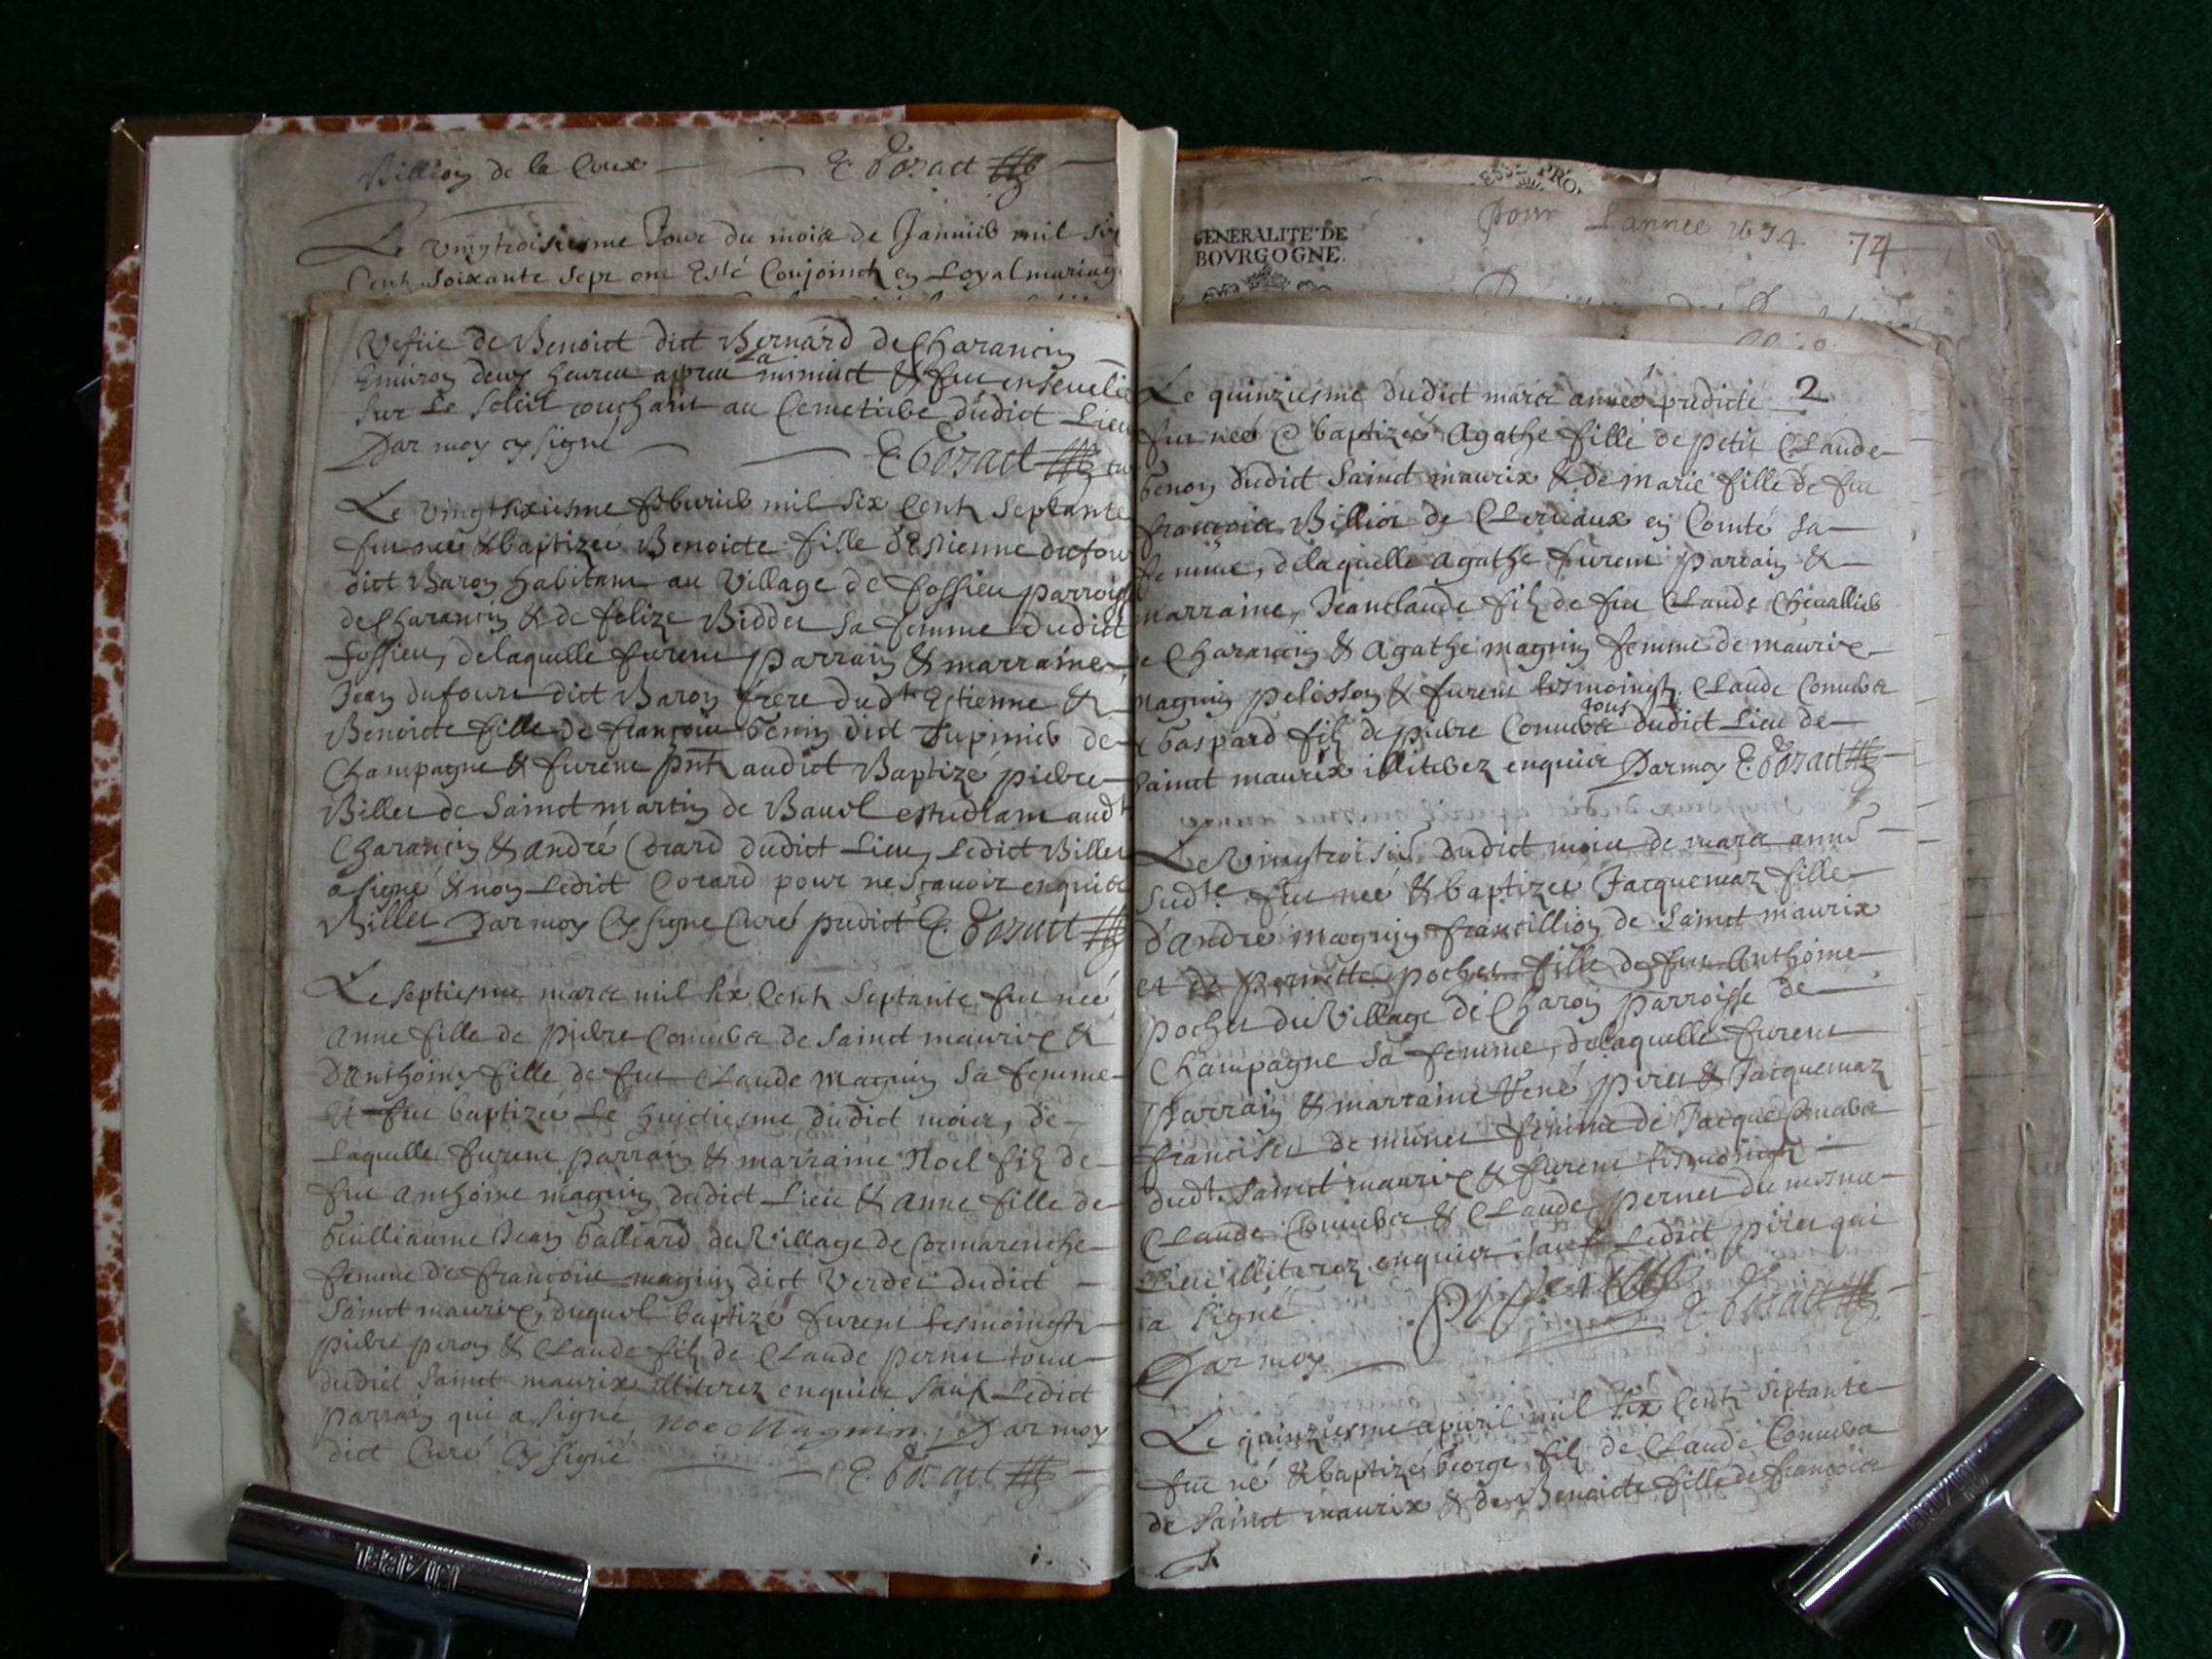 Billion de la Coux E. Bozact
Le vingtroisiesme Jour du mois de Januier mil six
Cents soixante sept ont Esté Conjoincts en Loyal mariage
Vefue de Benoict dict Bernard de Charancin
Enuiron deux heures apres la minuict & fut enseuelie
sur le soleil couchant au Cemetiere dudict Lieu
Par moy sssigné E. Bozact
Le vingtsixiesme feburier mil six Cents septante
fut née & baptizée Benoicte fille d'Estienne dufour
dict Baron habitant au Village de fossieu parroisse
de Charancin & de felize Biddet sa femme dudict
fossieu, de laquelle furent parrain & marraine
Jean dufour dict Baron frere dudt Estienne &
Benoicte fille de françois Genin dict Tupinier de
Champagne & furent pnts audict Baptizé pierre
Billet de Sainct martin de Bauel estudiant audt
Charancin & andré Corard dudict Lieu, Ledict Billet
a signé & non Ledict Corard pour ne sçauoir enquis
Billet Par moy sssigné Curé predict E. Bozact
Le septiesme mars mil six Cents septante fut née
anne fille de pierre Conuers de Sainct maurix &
d'anthoiny fille de feu Claude magnin sa femme
et fut baptizée le huictiesme dudict mois, de
laquelle furent parrain & marraine Noel fils de
feu anthoine magnin dudict Lieu & anne fille de
Guilliaume Jean Galliard du Village de Cormarenche
femme de françois magnin dict Verdet dudict
Sainct maurix, duquel baptizé furent tesmoingts
pierre peron & Claude fils de Claude pernet tous
dudict Sainct maurix illiterez enquis sauf Ledict
parrain qui a signé, noe Magnin, Par moy
dict Curé sssigné E. Bozact
GENERALITE DE
BOVRGOGNE.
pour L'annee 1674 74
2
Le quinziesme dudict mars année predicte
fut née & baptizée Agathe fille de petit Claude
Genon dudict Sainct maurix & de marie fille de feu
françois Billiot de Cleruaux en Comté sa
femme, de laquelle Agathe furent parrain &
marraine, Jean claude fils de feu Claude Cheuallier
de Charancin & Agathe magnin femme de maurix
magnin pelisson & furent tesmoingts Claude Conuers
& Gaspard fils de pierre Conuers tous dudict Lieu de
Sainct maurix illiterez enquis Par moy E. Bozact
Le Vingtroisie dudict mois de mars année
sudte fut née & baptizée Jacquemaz fille
d'andré magnin francillion de Sainct maurix
et de pernette pochet fille de feu Anthoine
pochet du Village de Charon parroisse de
Champagne sa femme, de laquelle furent
parrain & marraine René piret & Jacquemaz
francisca de munet femme de Jacque Conuers
dudt Sainct maurix & furent tesmoingts
Claude Conuers & Claude pernet du mesme
Lieu illiterez enquis sauf Ledict piret qui
a signé
E. Bozact
Par moy
Le quinziesme apuril mil six Cents septante
fut né & baptizé George fils de Claude Conuers
de Sainct maurix & de Benoicte fille de françois